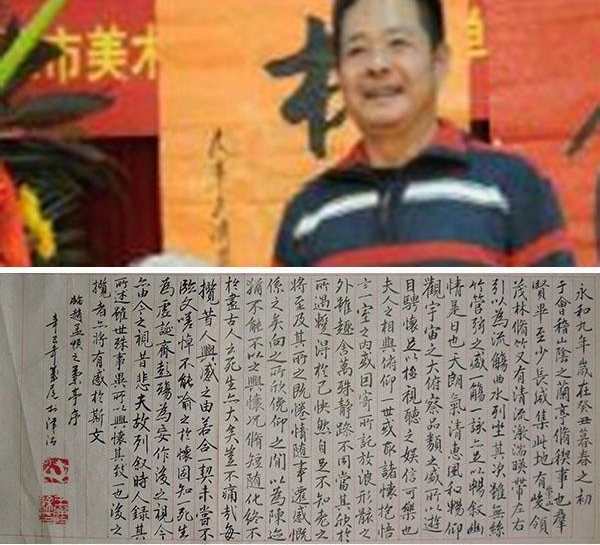 市美术
单
永和九年歲在癸丑暮春之初
于會稽山陰之蘭亭脩稧事也羣
賢畢至少長咸集此地有崇山峻領
茂林脩竹又有清流激湍暎帶左右
引以為流觴曲水列坐其次雖無絲
竹管弦之盛一觴一詠亦足以暢敘幽
情是日也天朗氣清惠風和暢仰
觀宇宙之大俯察品類之盛所以遊
目騁懷足以極視聽之娛信可樂也
夫人之相與俯仰一世或取諸懷抱悟
言一室之內或因寄所託放浪形骸之
外雖趣舍萬殊靜躁不同當其欣於
所遇暫得於己快然自足不知老之
將至及其所之既惓情隨事遷感慨
係之矣向之所欣俛仰之間以為陳迹
猶不能不以之興懷況脩短隨化終期
於盡古人云死生亦大矣豈不痛哉每
攬昔人興感之由若合一契未嘗不
臨文嗟悼不能喻之於懷固知死生
為虛誕齊彭殤為妄作後之視今
亦由今之視昔悲夫故列敘時人錄其
所述雖世殊事異所以興懷其致一也後之
攬者亦將有感於斯文
臨趙孟頫之蘭亭序
辛巳年夏尾於津沽